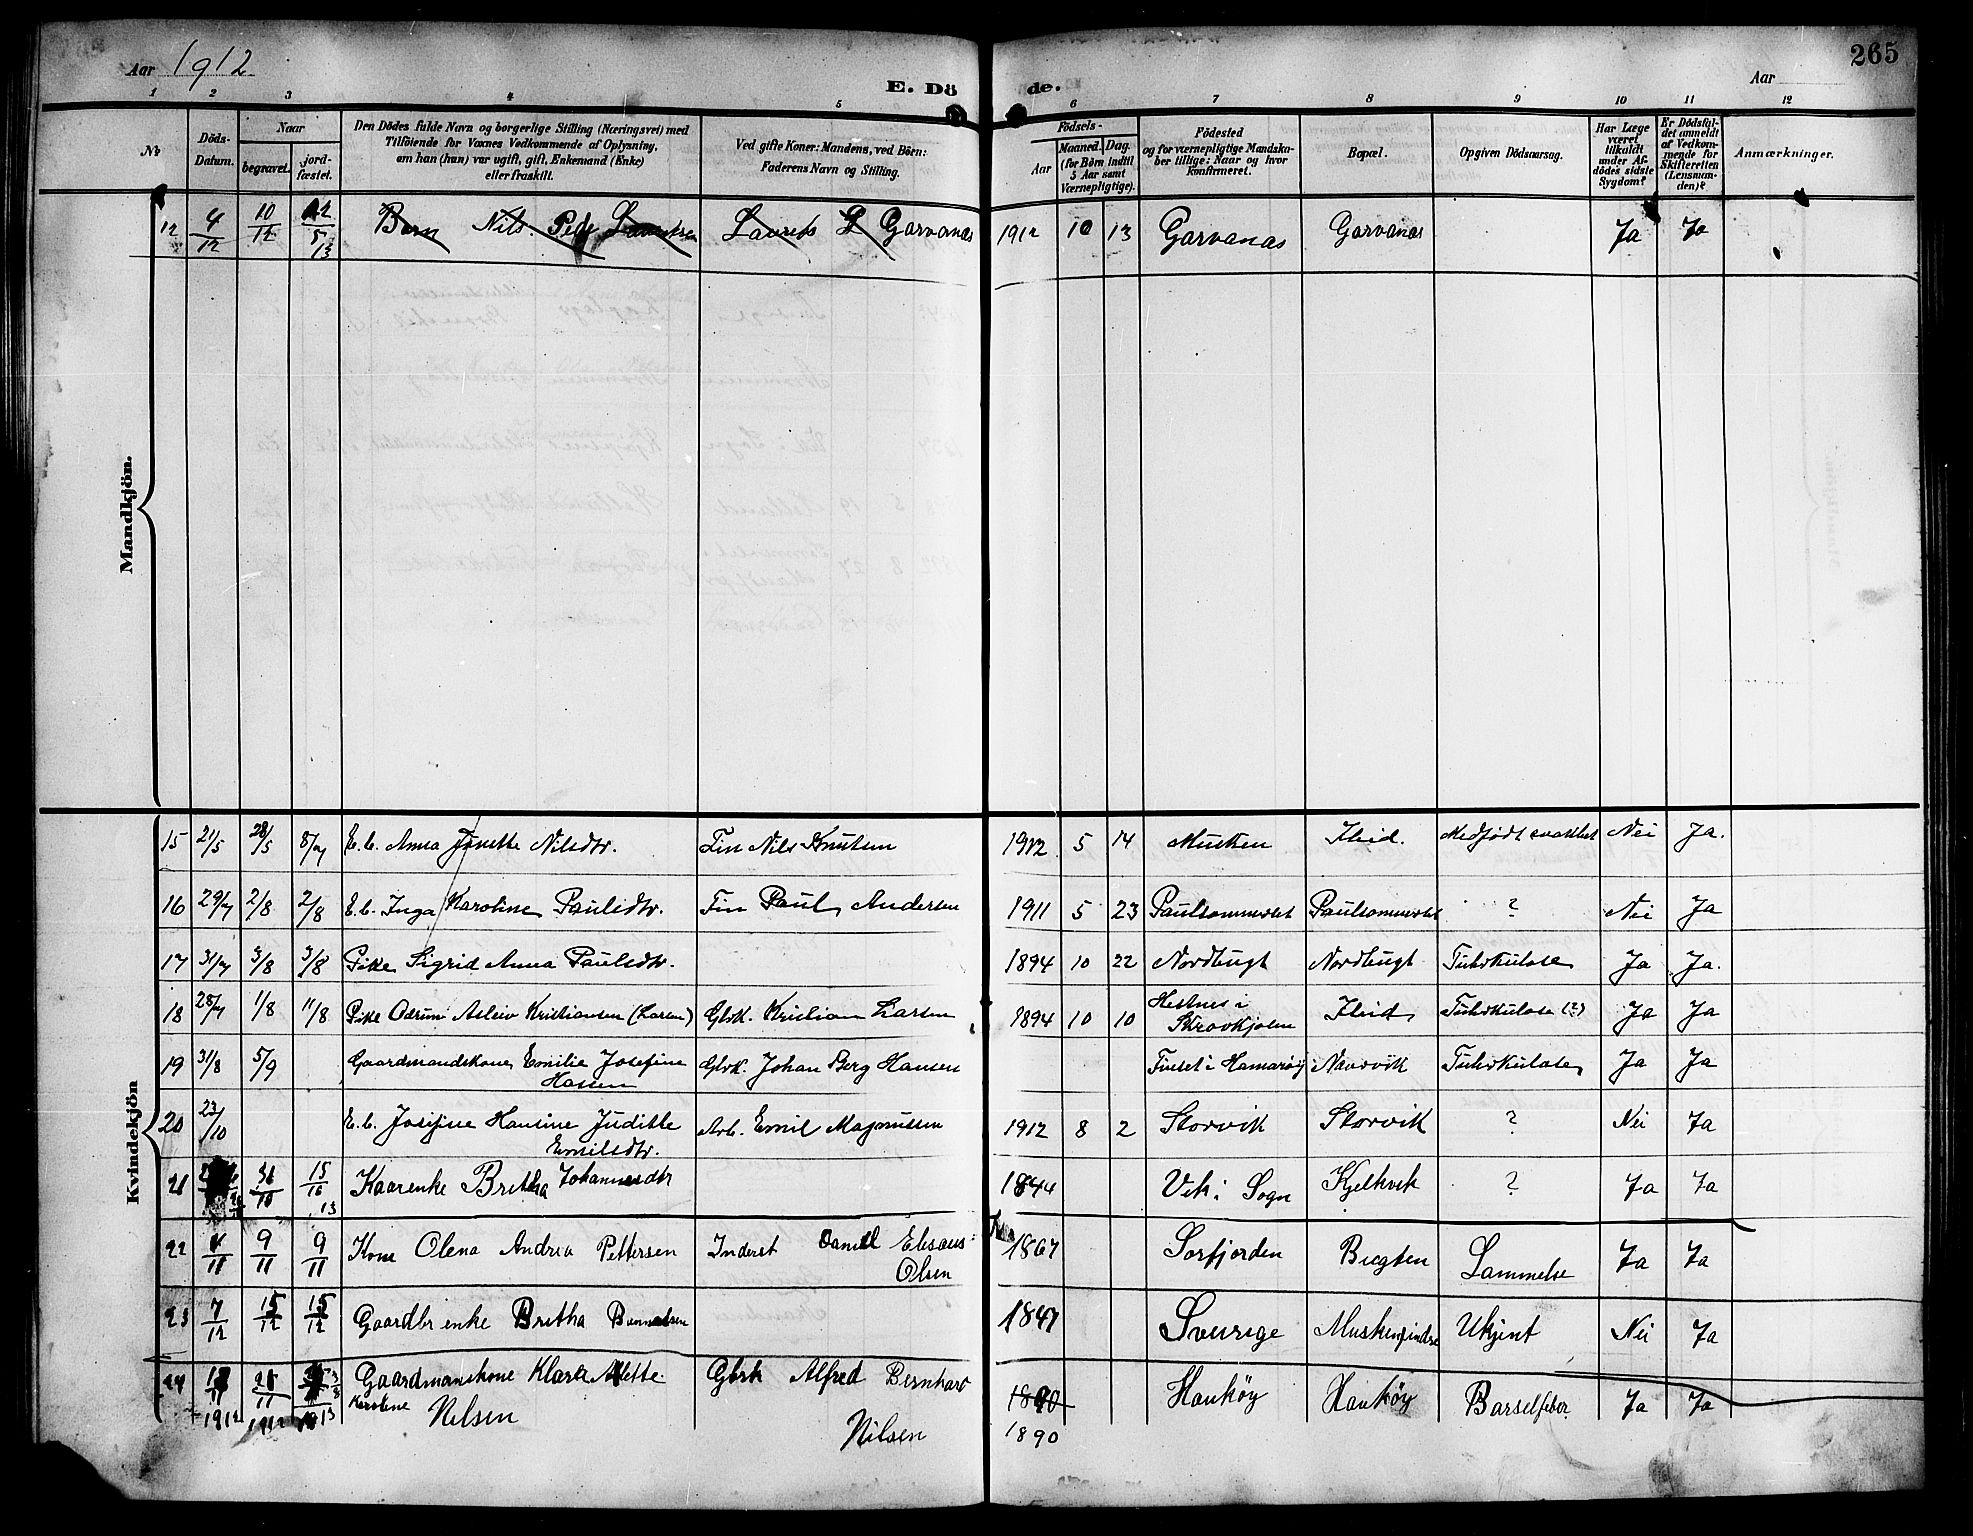 Aar 1912
265
E. Dö de.
Aar
1 2 3 4 5 6 7 8 9 10 11 12
Nr.
Döds-
Datum.
Naar
begravet.
jord-
fæstet.
Den Dödes fulde Navn og borgerlige Stilling (Næringsvei) med
Tilföiende for Voxnes Vedkommende af Oplysning,
om han (hun) var ugift, gift, Enkemand (Enke)
eller fraskilt.
Ved gifte Koner: Mandens, ved Börn:
Faderens Navn og Stilling.
Födsels-
Aar
Maaned. Dag.
(for Börn indtil
5 Aar samt
Værnepligtige).
Födested
og for værnepligtige Mandska-
ber tillige: Naar og hvor
konfirmeret.
Bopæl.
Opgiven Dödsaarsag.
Har Læge
været
tilkaldt
under Af-
dödes sidste
Sygdom?
Er Dödsfal-
det anmeldt
af Vedkom-
mende for
Skifteretten
(Lensman-
den)?
Anmærkninger.
Mandkjön.
12 4/12 10/12 Barn Nils Laurits Garvanæs 1912 10 13 Garvanæs Garvanæs Ja Ja
Kvindekjön
15 21/5 28/5 8/7 E. b. Anna Jonette Nilsdtr. Fin Nils Knutsen 1912 5 14 Musken Medfødt svakhet Nei Ja.
16 29/7 2/8 2/8 E. b. Inga Karoline Paulsdtr. Fin Paul Andersen 1911 5 23 Paulsommerset Paulsommerset ? Nei Ja
17 31/7 3/8 3/8 Pike Sigrid Anna Paulsdtr. 1894 10 22 Nordbugt Nordbugt Tuberkulose Ja Ja.
18 28/7 1/8 11/8 Pike Kristiansen (Larsen) Gbrk. Kristian Larsen 1894 10 10 Hestnes i
Tuberkulose (?) Ja Ja
19 31/8 5/9 Gaardmandskone Emilie Josefine
Hansen Gbrk. Johan Berg Hansen i Hamarøy Tuberkulose Ja Ja
20 23/10 E. b. Josefine Hansine Juditte
Emilsdtr. Arb. Emil Magnussen 1912 8 2 Storvik Storvik ? Nei Ja
21 15/10 13 Kaarenke Britha Johannesdtr 1844 Vik i Sogn Kjelkvik ? Ja Ja
22 4/11 9/11 9/11 Kone Olena Andrea Pettersen Inderst Daniel Elisæus
Olsen 1867 Sørfjorden Bugten Lammelse Ja Ja
23 7/12 15/12 15/12 Gaardbr enke Britha 1847 Sverige Ukjent Nei Ja
24 1912 1912 1913 Gaardmanskone Klara Alette
Karoline Nilsen Gbrk Alfred Bernhard
Nilsen 1890 Haukøy Haukøy Barselfeber Ja Ja